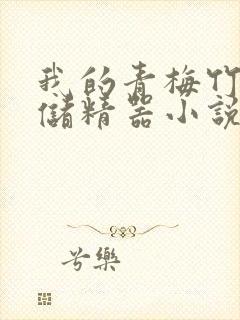 我的青梅竹
儲精器小說
兮樂